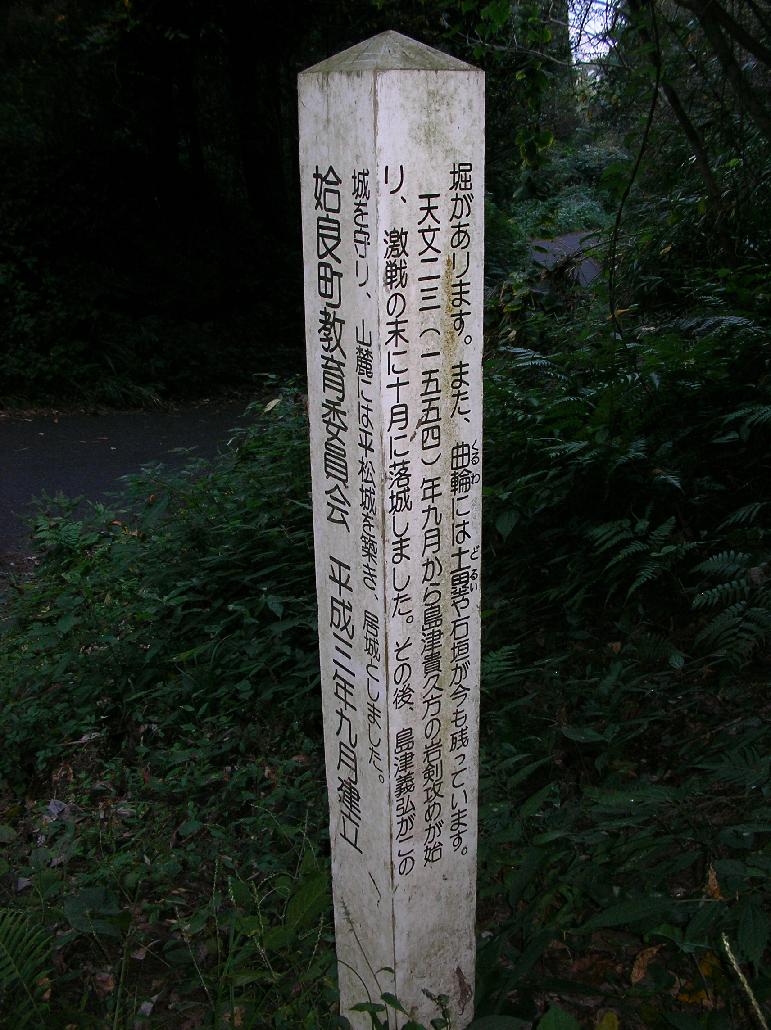 堀があります。また、曲輪には土塁や石垣が今も残っています。
くるわ
どるい
天文二三（一五五四）年九月から島津貴久方の岩剣攻めが始
り、激戦の末に十月に落城しました。その後、島津義弘がこの
城を守り、山麓には平松城を築き、居城としました。
姶良町教育委員会 平成三年九月建立